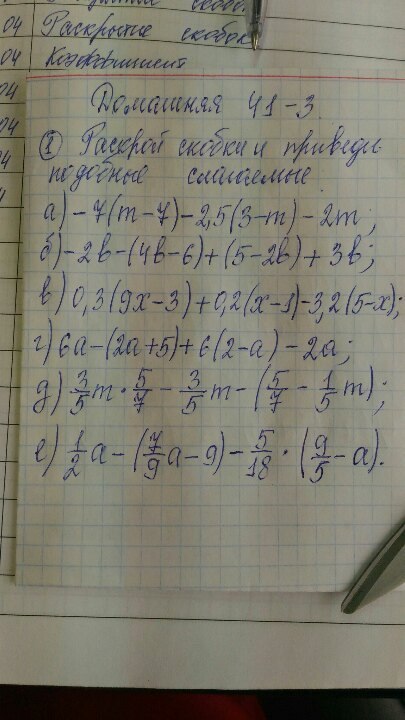 04 Раскрытие скобок
04 Коэффициент
04
04
04
04
Домашняя 41-3.
① Раскрой скобки и приведи
подобные слагаемые
а) -7(m-7)-2,5(3-m)-2m;
б) -2в-(4в-6)+(5-2в)+3в;
в) 0,3(9x-3)+0,2(x-1)-3,2(5-x);
г) 6a-(2a+5)+6(2-a)-2a;
д) 3/5 m · 5/7 - 3/5 m - (5/7 - 1/5 m);
е) 1/2 a - (7/9 a - 9) - 5/18 · (9/5 - a).